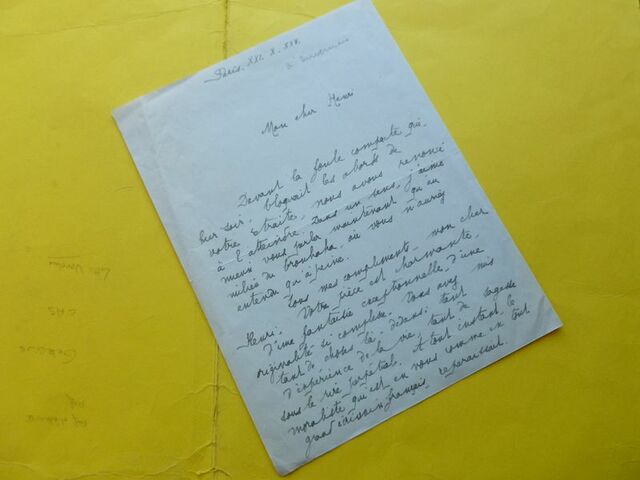 Paris. XXI. X. XXV.
Mon cher Henri
Devant la foule compacte qui
hier soir, bloquait les abords de
votre étroite, nous avons renoncé
à l'atteindre. Dans un sens, j'aime
mieux vous parler maintenant qu'au
milieu du brouhaha, où vous n'auriez
entendu qu'à peine.
Tous mes compliments, mon cher
Henri. Votre pièce est charmante,
d'une fantaisie exceptionnelle, d'une
originalité si complète. Vous avez mis
tant de choses là-dedans: tant
d'expérience de la vie, tant de sagesse
sous le rire perpétuel. A tout instant, le
moraliste qu'est en vous comme en tout
grand écrivain français, reparaissait.